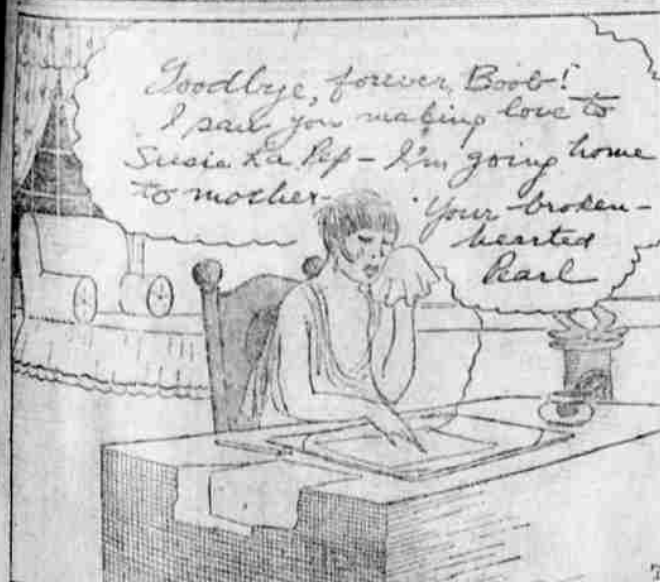 Goodbye, forever, Boob!
I saw you making love to
Susie La Pep - I'm going home
to mother-
Your broken-
hearted
Pearl